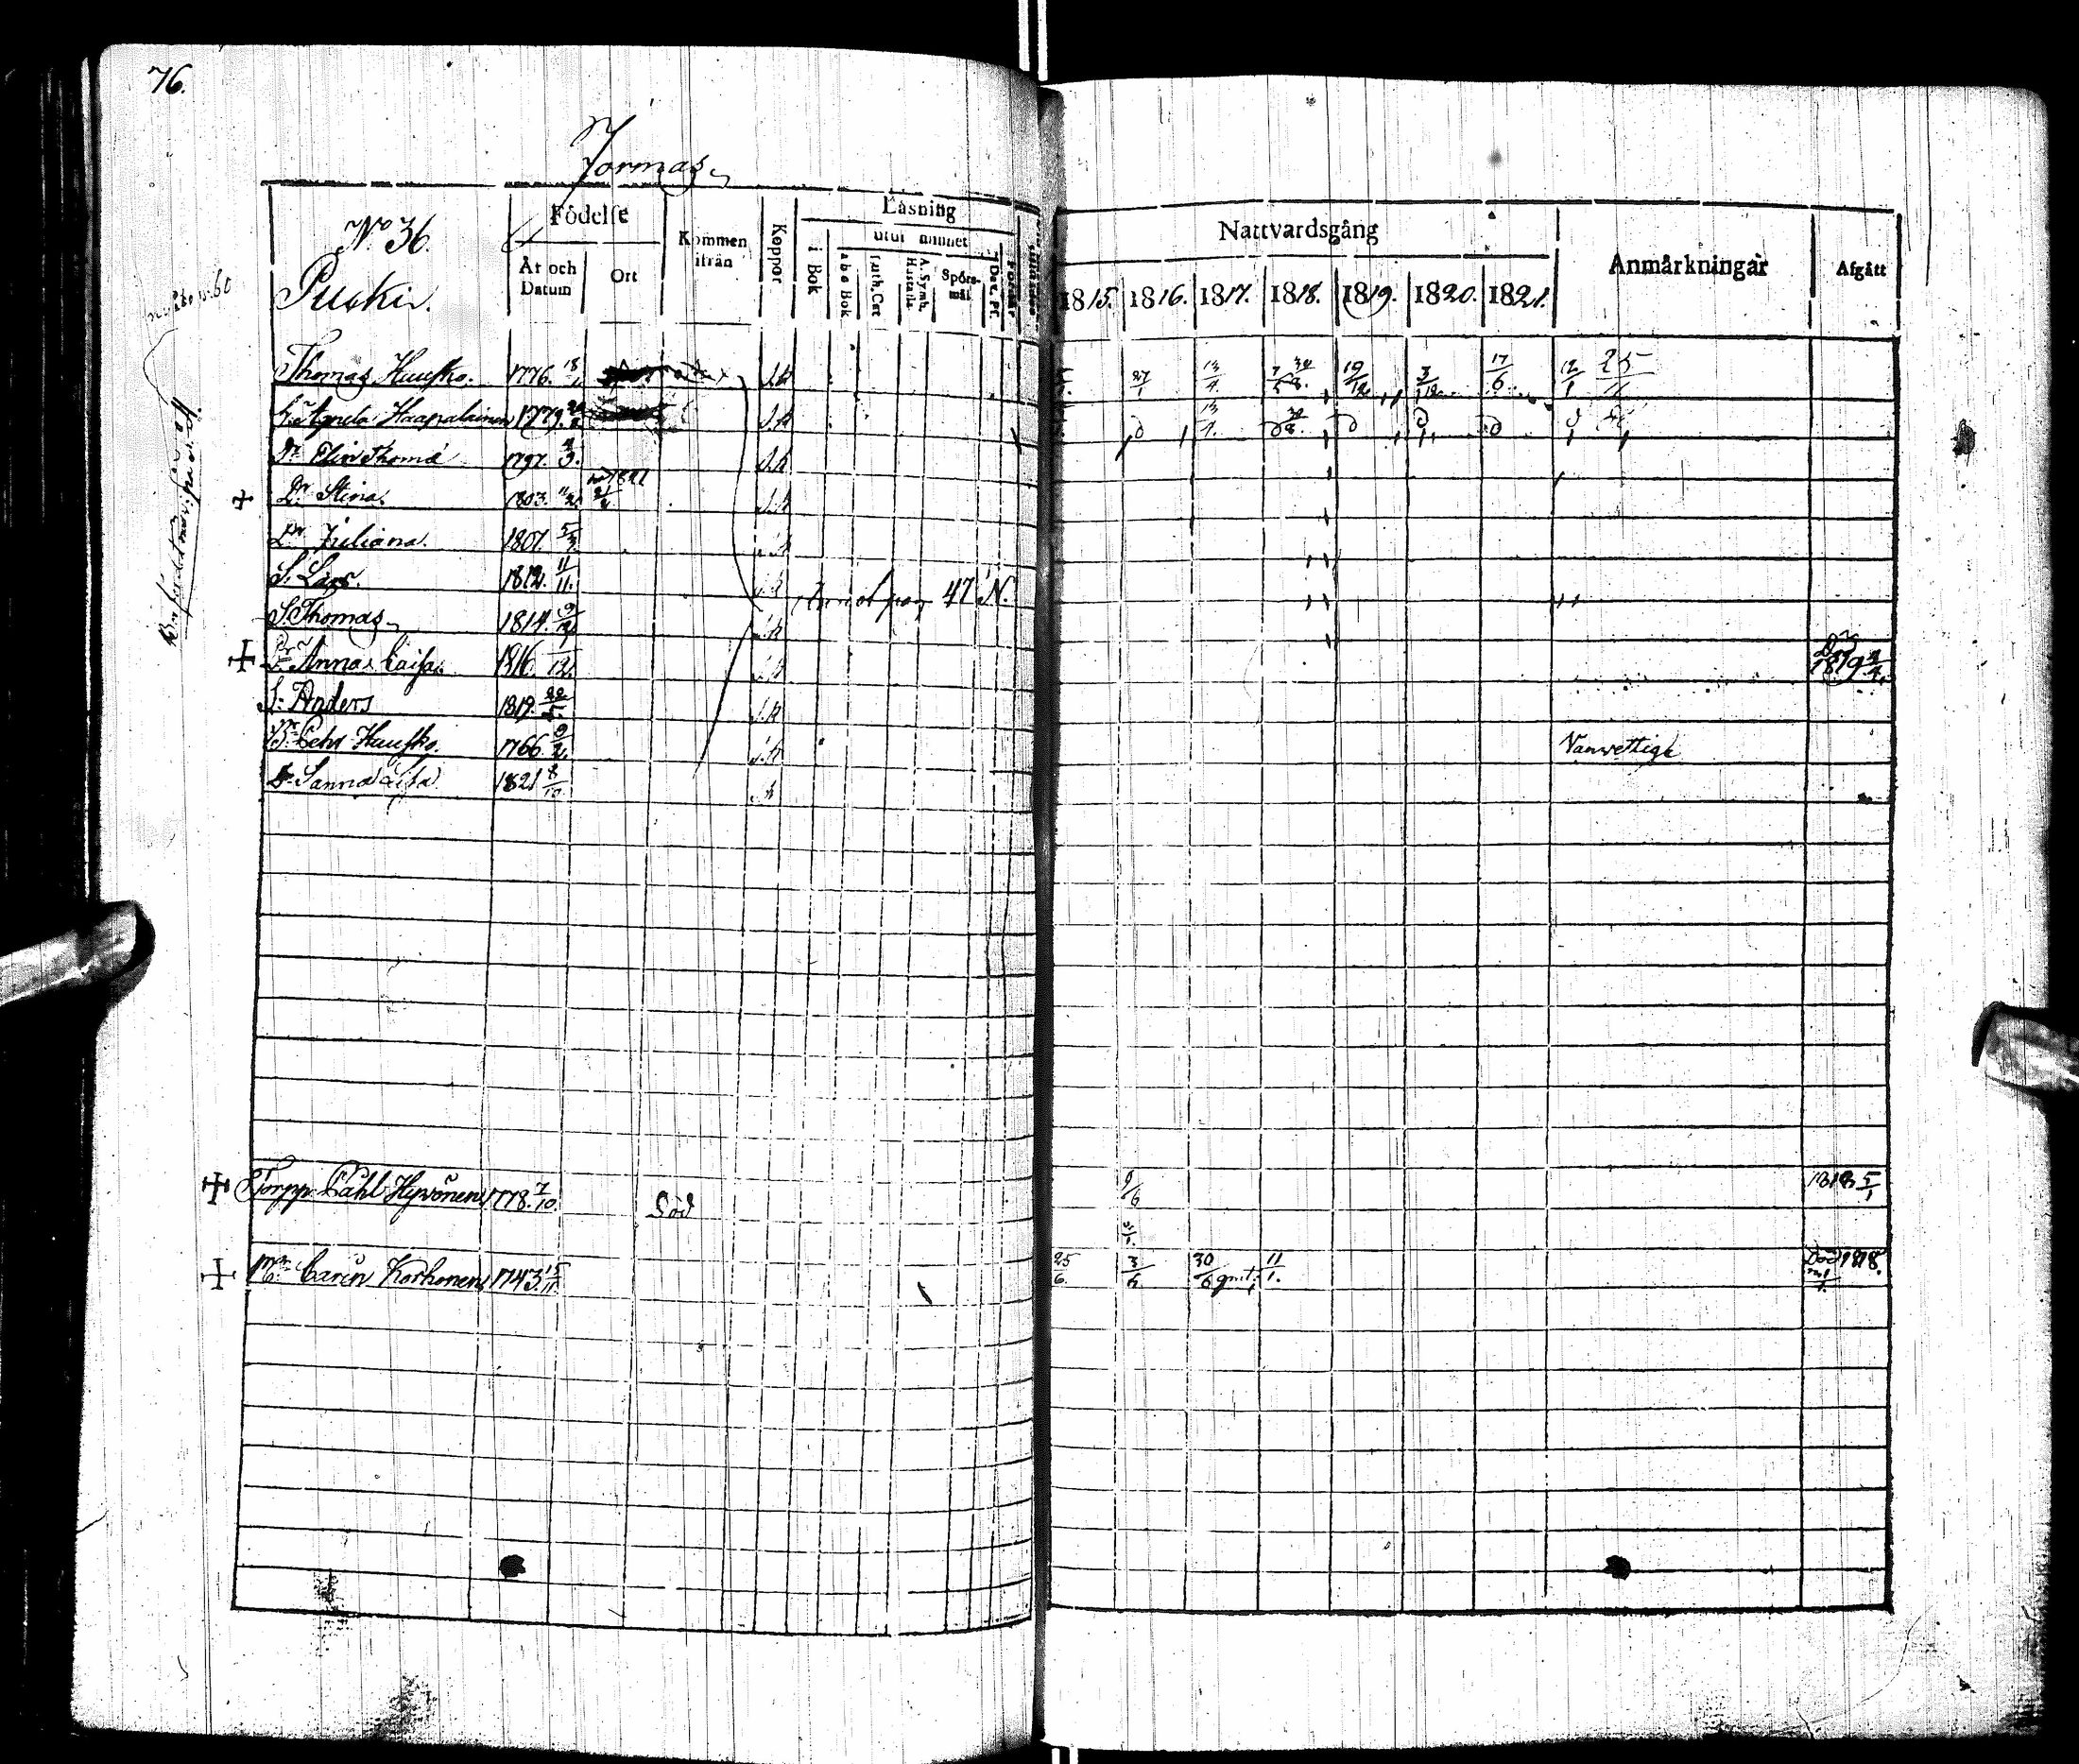 76.
Jormas
No 36.
Puski.
Födelse
År och Datum
Ort
Kommen ifrån
Koppor
Läsning
i Bok
utur minnet
a b c Bok
Luth. Cat
A. Symb. Hustafla
Spörsmål
Dav. Ps.
Nattvardsgång
1815. 1816. 1817. 1818. 1819. 1820. 1821.
Anmärkningar
Afgått
Thomas Hausko. 1776. 18/1 s.k 27/1 13/4. 19/12 3/12 17/6 12/1 25/11
H. Agneta Haapalainen 1779. s.k 13/4.
Dr. Elin Thomæ 1797. s.k
Dr. Stina. 1803. 1821 s.k
Dr. Juliana. 1807. 5/3. s.k
S. Lars. 1812. 11/11. s.k Annot. pag 47 N.
S. Thomas 1814. 9/12. s.k
Dr. Anna Caisa. 1816. 1/12. s.k Död 1819 4/4.
S. Anders 1819. s.k
Br. Pehr Hausko. 1766. 9/2. s.k Vanvettige
Dr. Sanna Lisa 1821 8/10. s.k
Torpp. Påhl Hyvönen 1778. 7/10. Död 9/6 1818 5/1
Mr. Carin Korhonen 1743. 15/11. 25/6. 3/6 30/6 11/1. Död 1818.